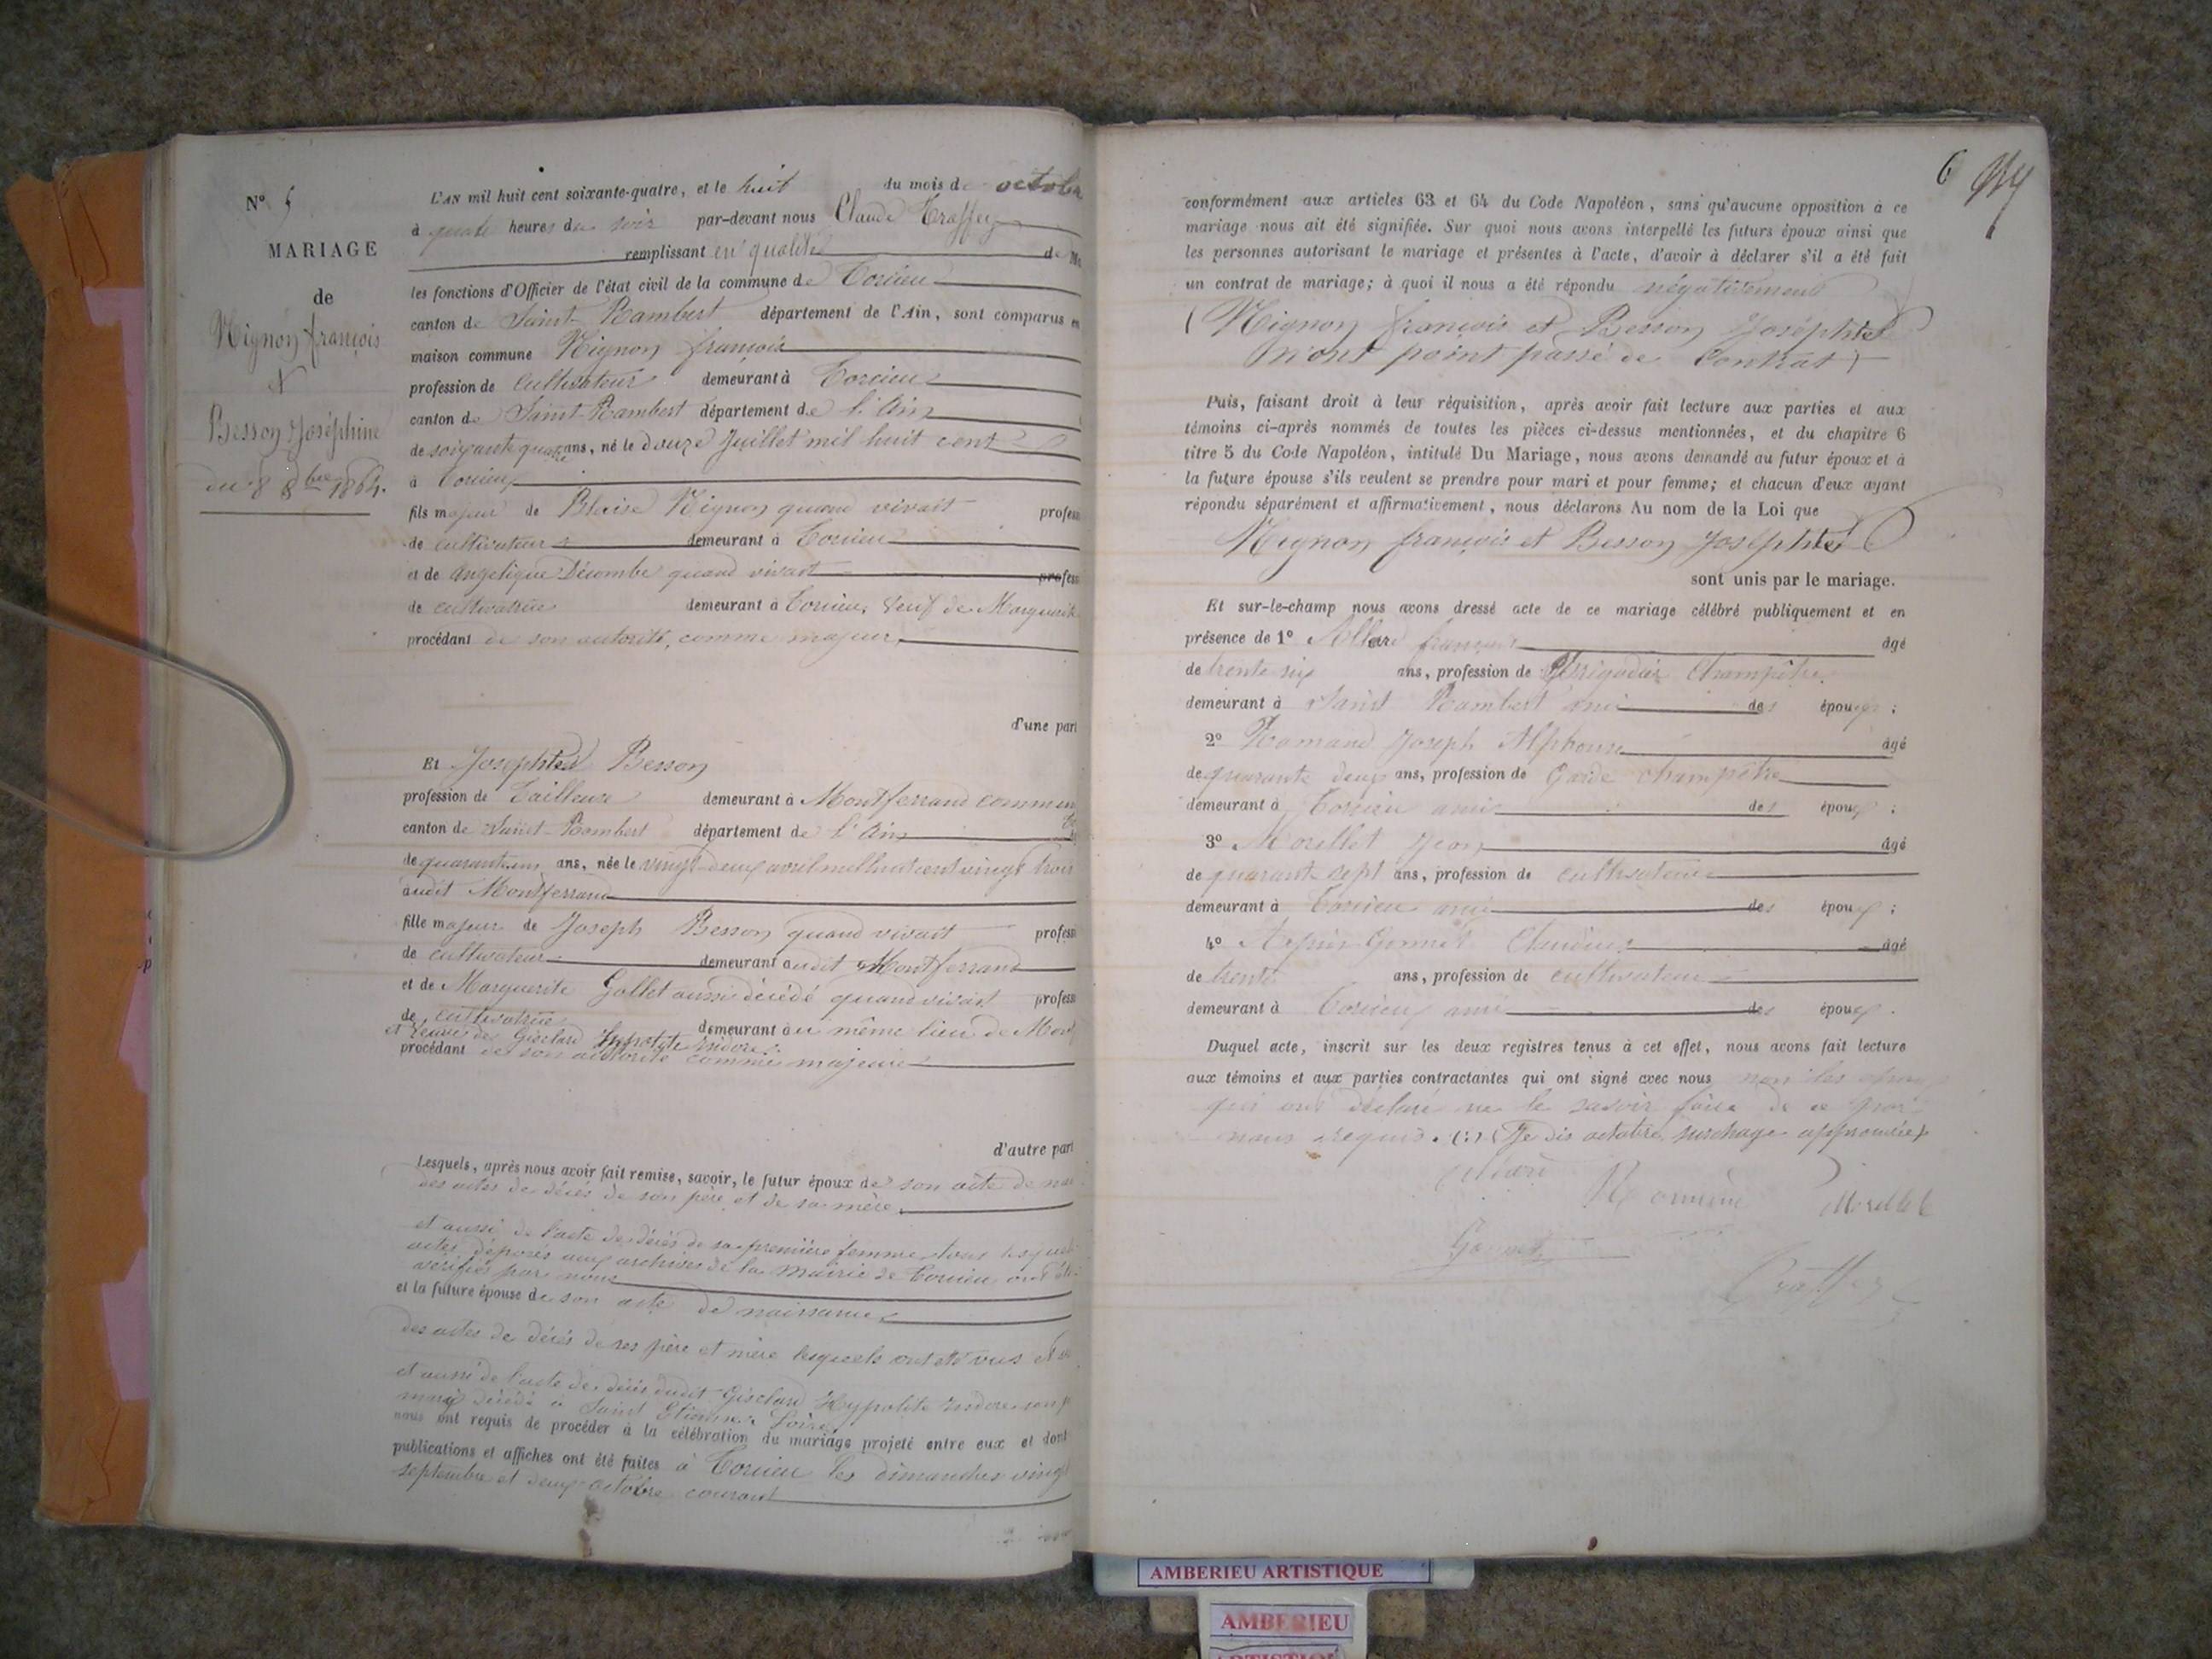 N° 5
MARIAGE
de
Mignon françois
et
Besson Joséphine
du 8 8bre 1864.
L'AN mil huit cent soixante-quatre, et le huit du mois de octobre
à quatre heures du soir par-devant nous Claude Traffey
remplissant en qualité de
les fonctions d'Officier de l'état civil de la commune de Torcieu
canton de Saint-Rambert département de l'Ain, sont comparus en
maison commune Mignon françois
profession de cultivateur demeurant à Torcieu
canton de Saint-Rambert département de l'Ain
de soixante quatre ans, né le douze Juillet mil huit cent
à Torcieu
fils majeur de Blaise Mignon quand vivait profess
de cultivateur demeurant à Torcieu
et de Angelique Décombe quand vivait profess
de cultivatrice demeurant à Torcieu, Veuf de Marguerite
procédant de son autorité, comme majeur,
d'une part
Et Besson
profession de Tailleuse demeurant à Montferrand commune
canton de Saint-Rambert département de l'Ain
de quarante un ans, née le vingt-deux avril mil huit cent vingt trois
audit Montferrand
fille majeure de Joseph Besson quand vivait profess
de cultivateur demeurant audit Montferrand
et de Marguerite Gollet aussi décédé quand vivait profess
de cultivatrice demeurant au même lieu de Mont
et veuve de Gisclard Hypolyte Isidore
procédant de son autorité comme majeure
d'autre part
Lesquels, après nous avoir fait remise, savoir, le futur époux de son acte de nais
des actes de décès de son père et de sa mère,
et aussi de l'acte de décès de sa première femme, tous lesquels
actes déposés aux archives de la Mairie de Torcieu ont été
vérifiés par nous
et la future épouse de son acte de naissance,
des actes de décès de ses père et mère lesquels ont été vus et
et aussi de l'acte de décès dudit Gisclard Hypolite Isidore son
mari décédé à Saint Etienne Loire
nous ont requis de procéder à la célébration du mariage projeté entre eux et dont
publications et affiches ont été faites à Torcieu les dimanches vingt
septembre et deux octobre courant
6
conformément aux articles 63 et 64 du Code Napoléon, sans qu'aucune opposition à ce
mariage nous ait été signifiée. Sur quoi nous avons interpellé les futurs époux ainsi que
les personnes autorisant le mariage et présentes à l'acte, d'avoir à déclarer s'il a été fait
un contrat de mariage; à quoi il nous a été répondu négativement
(Mignon françois et Besson
n'ont point passé de Contrat)
Puis, faisant droit à leur réquisition, après avoir fait lecture aux parties et aux
témoins ci-après nommés de toutes les pièces ci-dessus mentionnées, et du chapitre 6
titre 5 du Code Napoléon, intitulé Du Mariage, nous avons demandé au futur époux et à
la future épouse s'ils veulent se prendre pour mari et pour femme; et chacun d'eux ayant
répondu séparément et affirmativement, nous déclarons Au nom de la Loi que
Mignon françois et Besson
sont unis par le mariage.
Et sur-le-champ nous avons dressé acte de ce mariage célébré publiquement et en
présence de 1° françois âgé
de trente six ans, profession de Brigadier Champêtre
demeurant à Saint Rambert ami des époux ;
2° Joseph Alphonse âgé
de quarante deux ans, profession de Garde champêtre
demeurant à Torcieu ami des époux ;
3° Morellet Jean âgé
de quarante sept ans, profession de cultivateur
demeurant à Torcieu ami des époux ;
4° Gonnet Claudius âgé
de trente ans, profession de cultivateur
demeurant à Torcieu ami des époux .
Duquel acte, inscrit sur les deux registres tenus à cet effet, nous avons fait lecture
aux témoins et aux parties contractantes qui ont signé avec nous non les époux
qui ont déclaré ne le savoir faire de ce par
nous requis. (Je dis octobre, surchage approuvée)
Morellet
Gonnet
Traffey
AMBERIEU ARTISTIQUE
AMBERIEU
ARTISTIQUE